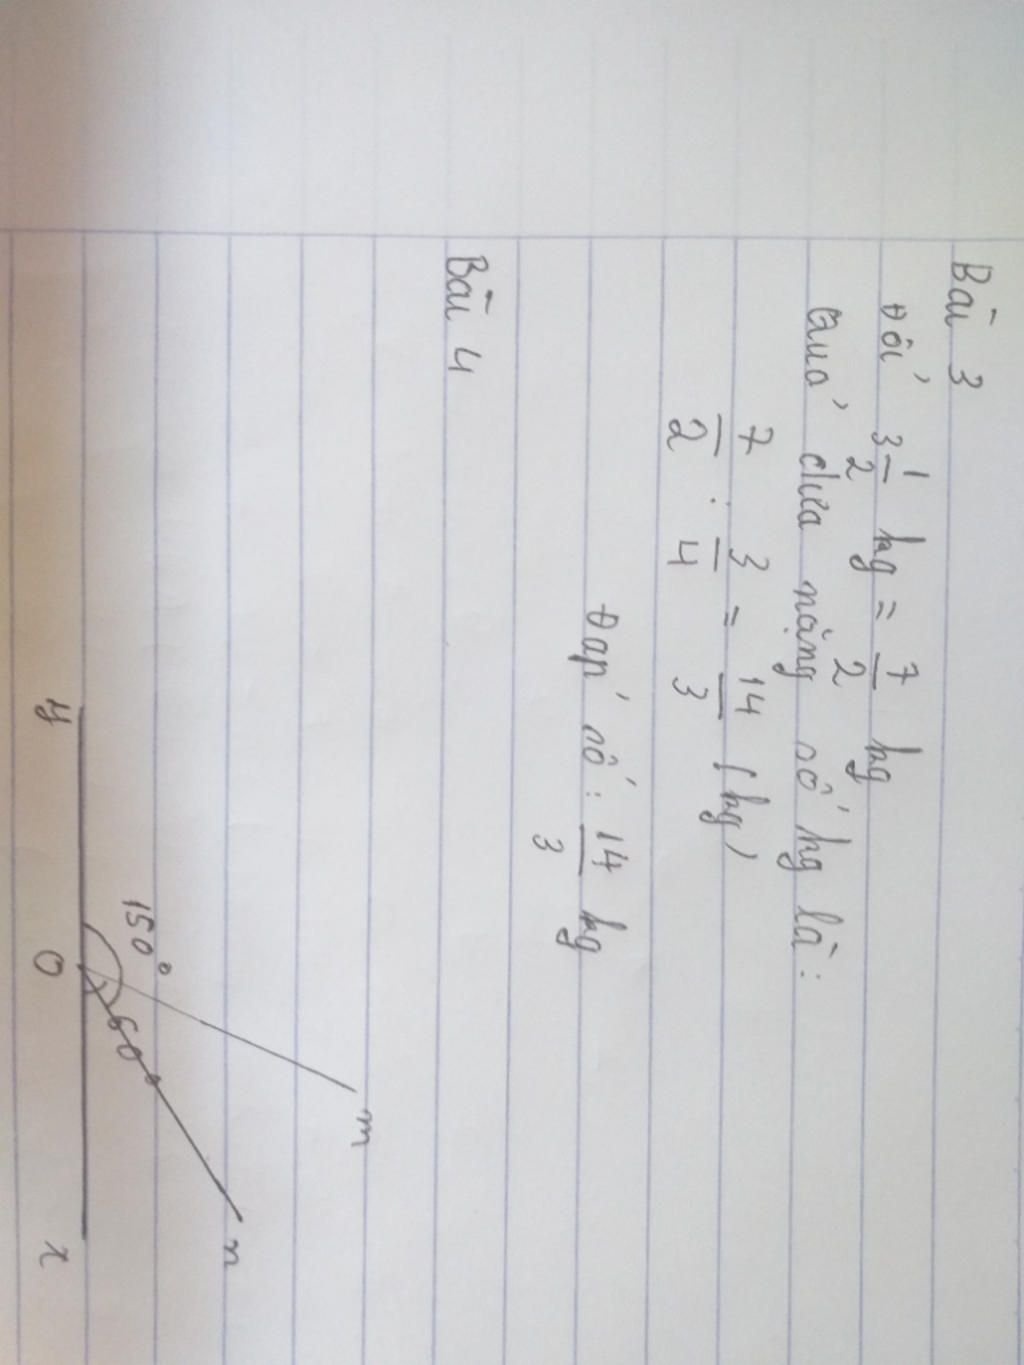 Bài 3
Đổi 3 1/2 kg = 7/2 kg
Quả dưa nặng số kg là:
7/2 : 3/4 = 14/3 (kg)
Đáp số: 14/3 kg
Bài 4
m
n
150° 60°
y O x